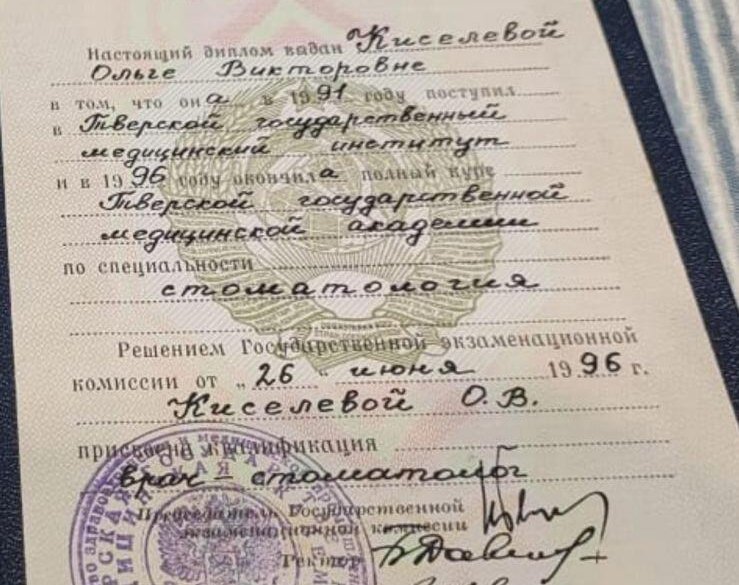 Настоящий диплом выдан Киселевой
Ольге Викторовне
в том, что она в 1991 году поступил
в Тверской государственный
медицинский институт
и в 1996 году окончила полный курс
Тверской государственной
медицинской академии
по специальности
стоматология
Решением Государственной экзаменационной
комиссии от „26“ июня 1996 г.
Киселевой О.В.
присвоена квалификация
врач – стоматолог
Председатель Государственной
экзаменационной комиссии
Ректор